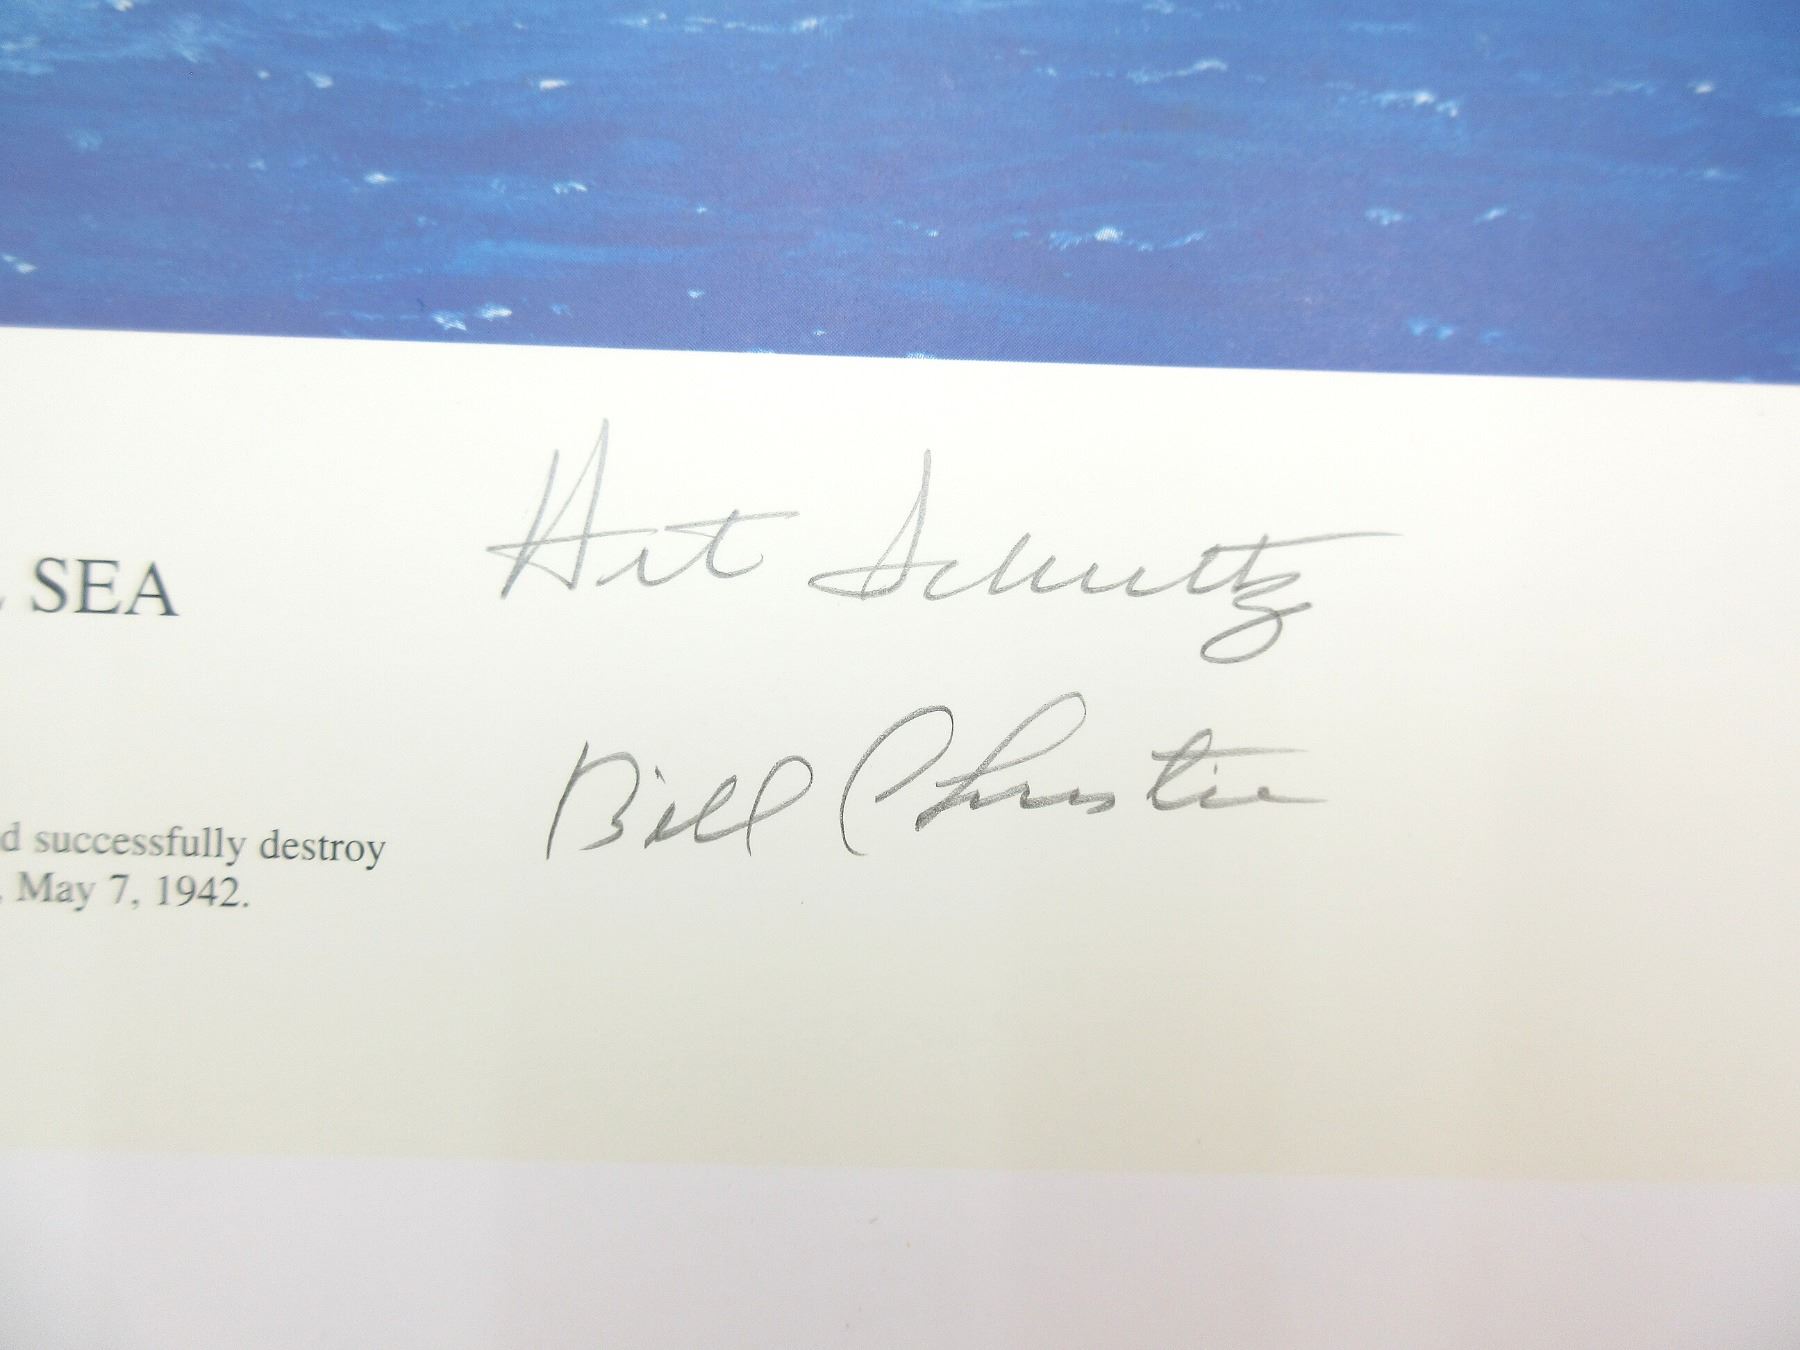 SEA
Art Schultz
Bill Christie
d successfully destroy
, May 7, 1942.